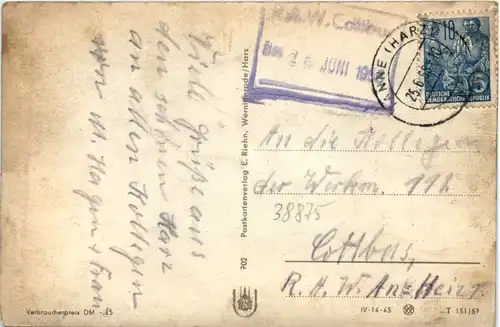 Viele Grüße aus
dem schönen Harz
an allen Kollegen
von M. Hagen + Frau
Verbraucherpreis DM -.15
702 Postkartenverlag E. Riehn, Wernigerode/Harz
R.A.W. Cottbus
26. JUNI 195
ANNE (HARZ)
25.6.
10
DEUTSCHE
DEMOKRATISCHE REPUBLIK
An die Kollegen
der Werkm. 111
38875
Cottbus,
R.A.W.
IV-14-45
T 151/57